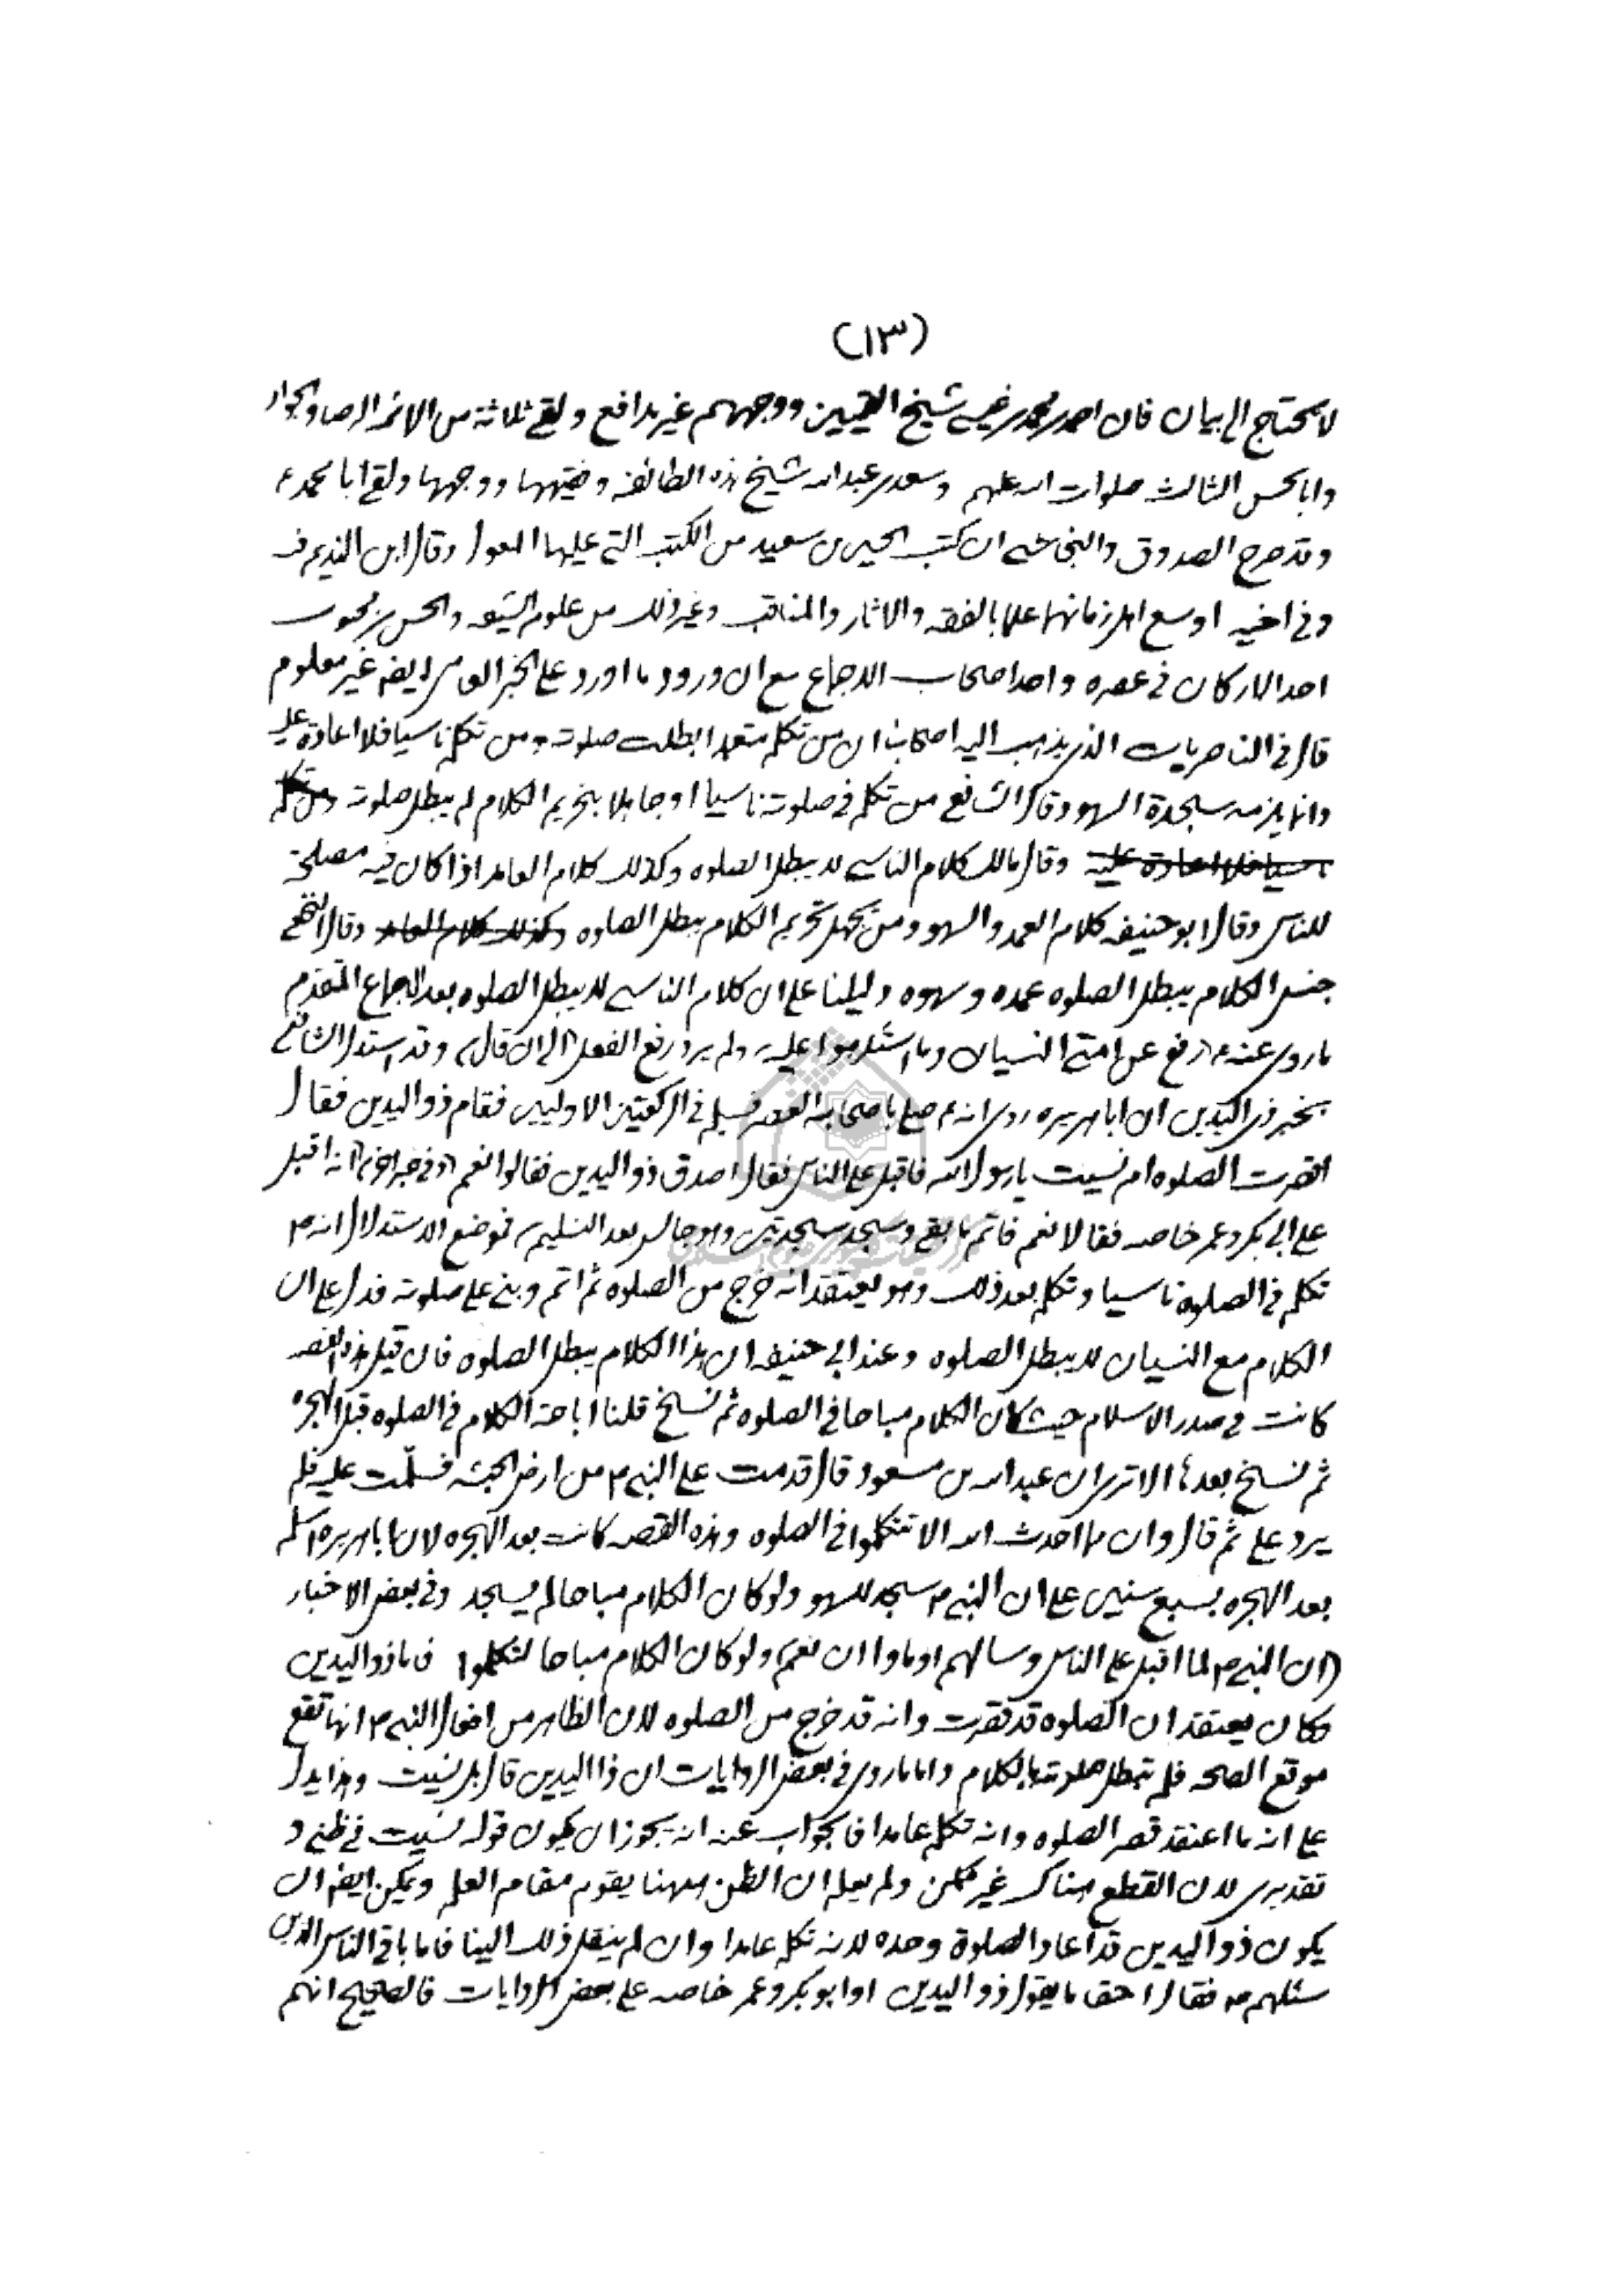 (١٣)
لا يحتاج الى بيان فان احمد بن محمد بن عيسى شيخ القميين ووجههم غير مدافع ولقى ثلاثة من الائمة الرضا والجواد
وابا الحسن الثالث صلوات الله عليهم وسعد بن عبد الله شيخ هذه الطائفه وفقيهها ووجهها ولقى ابا محمد ع
وقد صرح الصدوق والنجاشى ان كتب الحسين بن سعيد من الكتب التى عليها المعول وقال ابن النديم فيه
وفى اخيه اوسع اهل زمانهما علما بالفقه والاثار والمناقب وغير ذلك من علوم الشيعه والحسن بن محبوب
احد الاركان فى عصره واحد اصحاب الاجماع مع ان ورود ما اورد على الخبر العامى ايضا غير معلوم
قال فى الناصريات الذى يذهب اليه اصحابنا ان من تكلم متعمدا بطلت صلوته ومن تكلم ناسيا فلا اعادة عليه
وانما يلزمه سجدة السهو وقال الشافعى من تكلم فى صلوته ناسيا او جاهلا بتحريم الكلام لم يبطل صلوته ومن تكلم
ناسيا فلا اعادة عليه وقال مالك كلام الناسى لا يبطل الصلوه وكذلك كلام العامد اذا كان فيه مصلحة
للناس وقال ابو حنيفه كلام العمد والسهو ومن يجهل تحريم الكلام يبطل الصلوه وكذلك كلام العامد وقال النخعى
جنس الكلام يبطل الصلوه عمده وسهوه دليلنا على ان كلام الناسى لا يبطل الصلوه بعد الاجماع المتقدم
ما روى عنه ع رفع عن امتى النسيان وما استكرهوا عليه ولم يرد رفع الفعل (الى ان قال) وقد استدل الشافعى
بخبر ذى اليدين ان ابا هريره روى انه ع صلى باصحابه العصر فسلم فى الركعتين الاوليين فقام ذو اليدين فقال
اقصرت الصلوه ام نسيت يا رسول الله فاقبل على الناس فقال اصدق ذو اليدين فقالوا نعم (وفى خبر اخر) انه اقبل
على ابى بكر وعمر خاصه فقالا نعم فاتم ما بقى وسجد سجدتين وهو جالس بعد التسليم فوضع الاستدلال انه ص
تكلم فى الصلوة ناسيا وتكلم بعد ذلك وهو يعتقد انه خرج من الصلوه ثم اتم وبنى على صلوته فدل على ان
الكلام مع النسيان لا يبطل الصلوه وعند ابى حنيفه ان هذا الكلام يبطل الصلوه فان قيل هذه القصه
كانت فى صدر الاسلام حيث كان الكلام مباحا فى الصلوه ثم نسخ قلنا اباحة الكلام فى الصلوه قبل الهجره
ثم نسخ بعدها الا ترى ان عبد الله بن مسعود قال قدمت على النبى ص من ارض الحبشه فسلّمت عليه فلم
يرد على ثم قال وان مما احدث الله الا تتكلموا فى الصلوه وهذه القصه كانت بعد الهجره لان ابا هريره اسلم
بعد الهجره بسبع سنين على ان النبى ص سجد للسهو ولو كان الكلام مباحا لم يسجد وفى بعض الاخبار
(ان النبى ص لما اقبل على الناس وسالهم اوماوا ان نعم) ولو كان الكلام مباحا لتكلموا فاما ذو اليدين
فكان يعتقد ان الصلوة قد قصرت وانه قد خرج من الصلوه لان الظاهر من افعال النبى ص انها تقع
موقع الصحه فلم تبطل صلوته بالكلام واما ما روى فى بعض الروايات ان ذا اليدين قال بل نسيت وهذا يدل
على انه ما اعتقد قصر الصلوه وانه تكلم عامدا فالجواب عنه انه يجوز ان يكون قوله نسيت فى ظنى و
تقديرى لان القطع هناك غير ممكن ولم يعلم ان الظن ههنا يقوم مقام العلم ويمكن ايضا ان
يكون ذو اليدين قد اعاد الصلوة وحده لانه تكلم عامدا وان لم ينقل ذلك الينا فاما باقى الناس الذين
سئلهم ص فقال احق ما يقول ذو اليدين او ابو بكر وعمر خاصه على بعض الروايات فالصحيح انهم